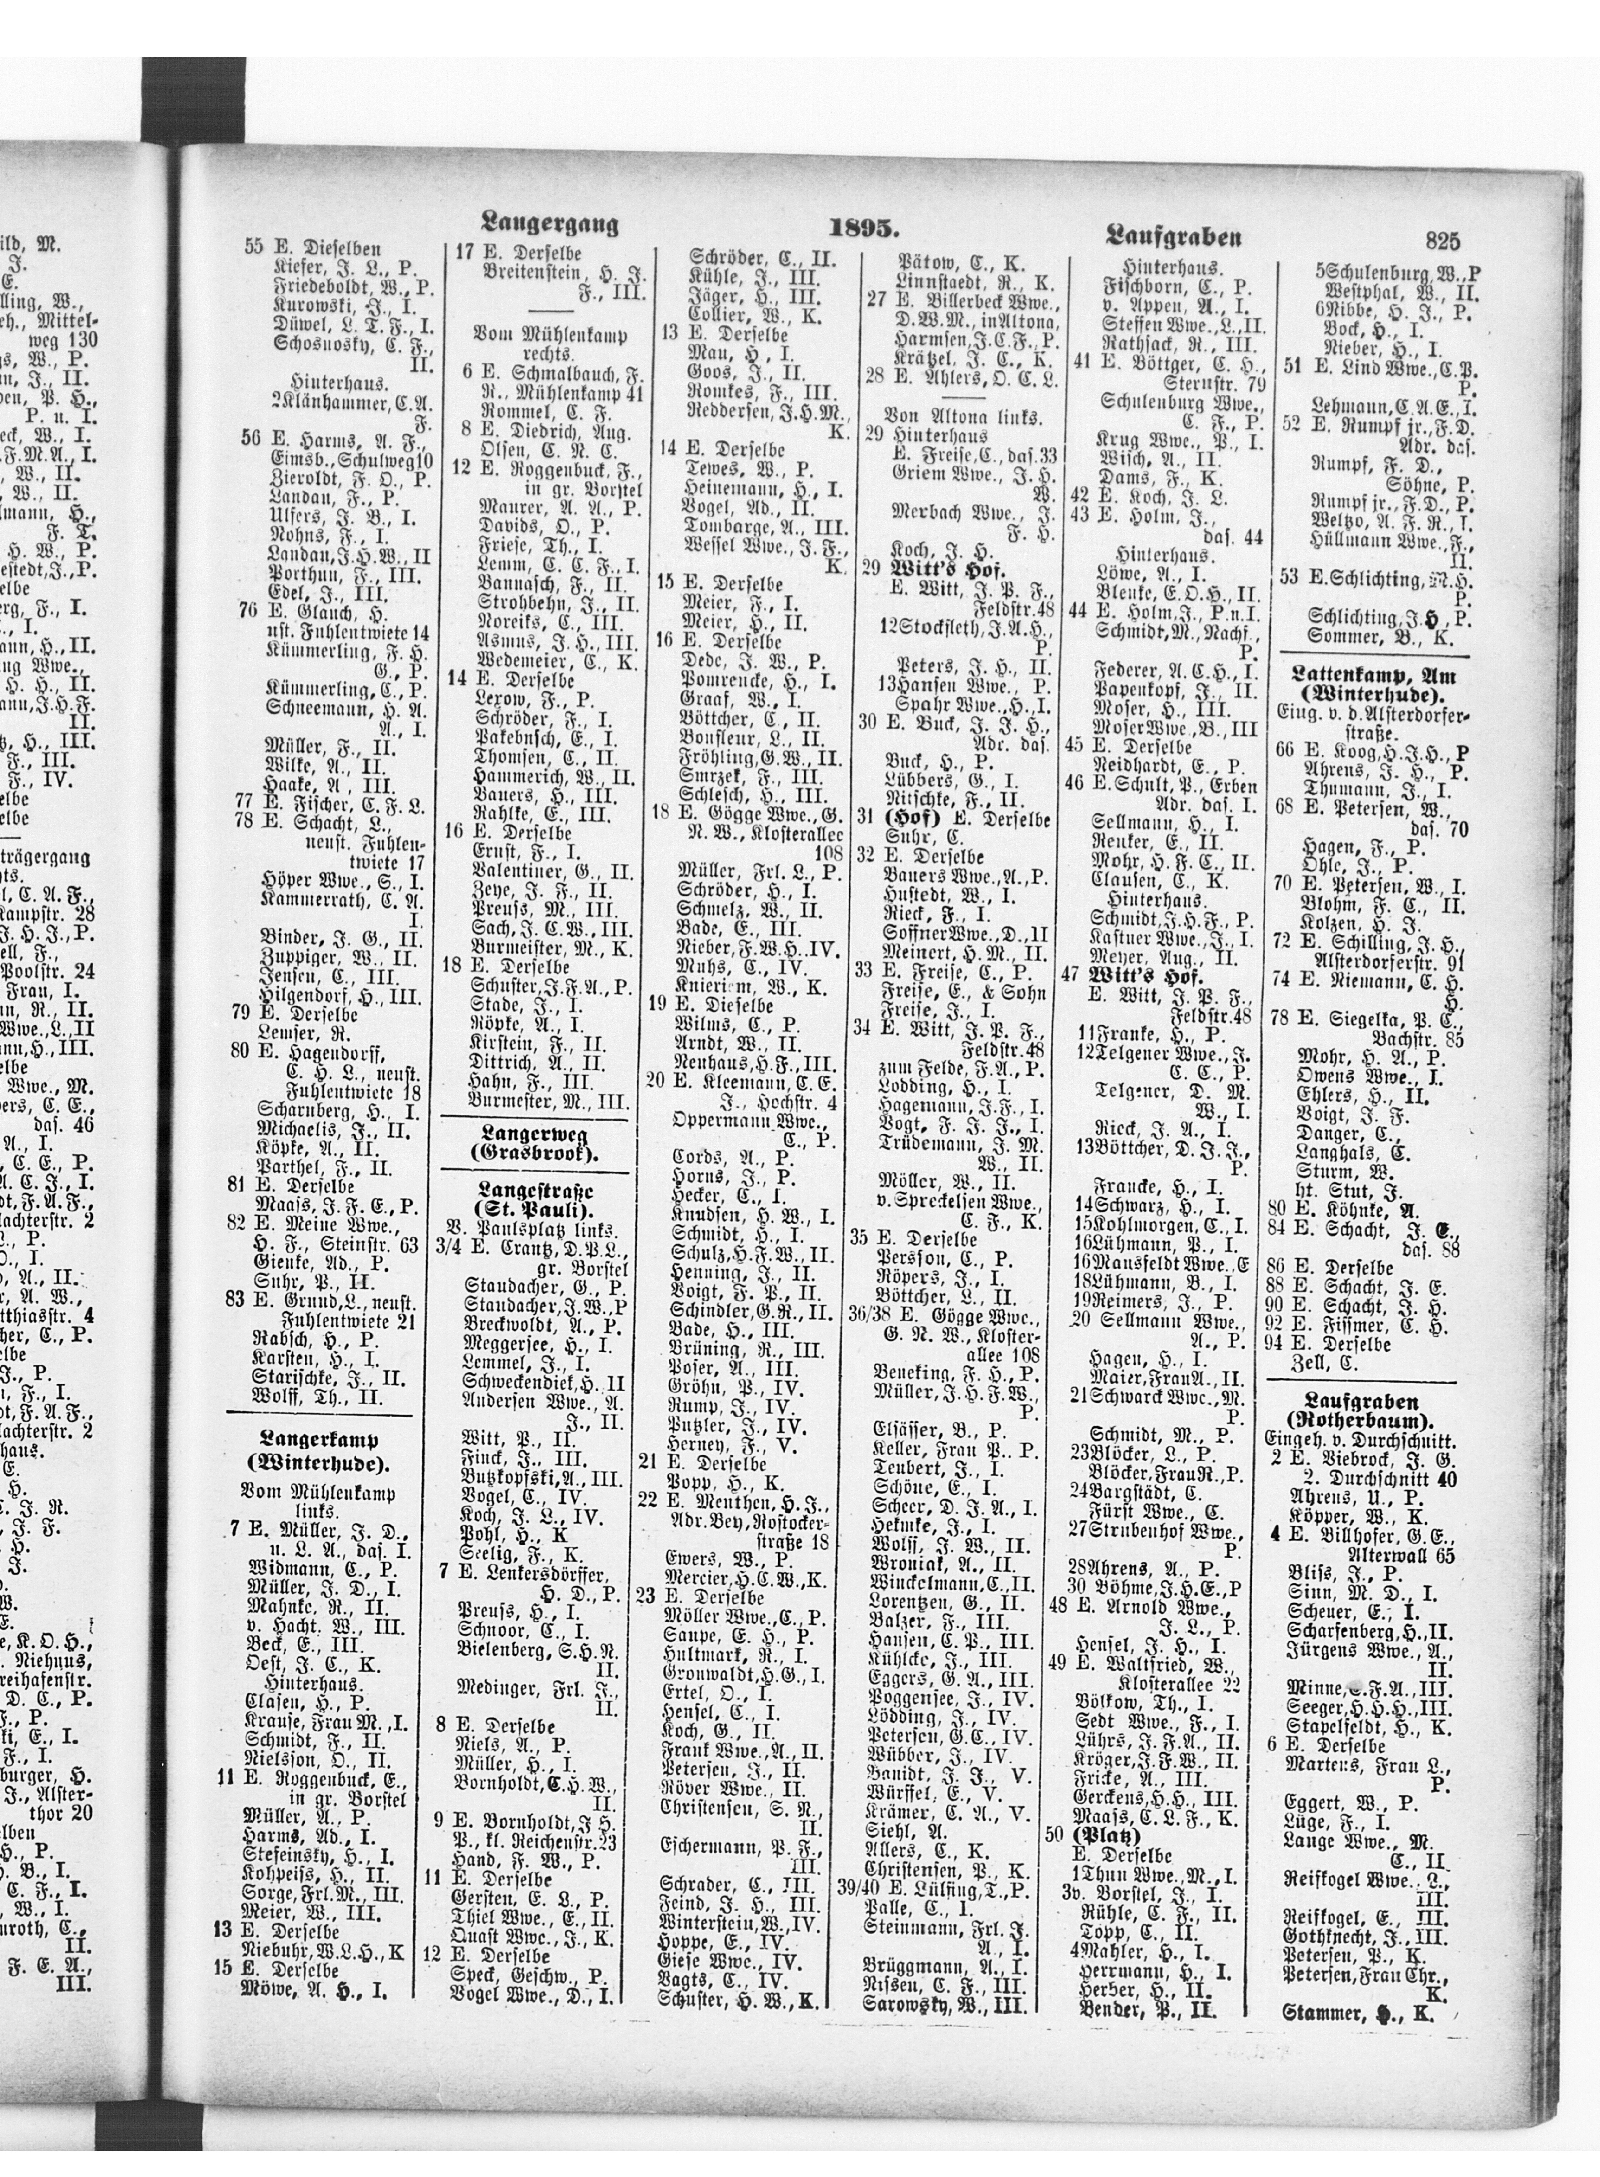 Langergang
1895.
Laufgraben
825
55 E. Dieselben
Kiefer, J. L., P.
Friedeboldt, W., P.
Kurowski, J., I.
Düwel, L. T. F., I.
Schosnosky, C. F.,
II.
Hinterhaus.
2Klänhammer, C. A.
F.
56 E. Harms, A. F.,
Eimsb., Schulweg10
Zieroldt, F. O., P.
Landau, F., P.
Ulfers, J. B., I.
Nohns, F., I.
Landau, J. H. W., II
Porthun, F., III.
Edel, J., III.
76 E. Glauch, H.
nst. Fuhlentwiete 14
Kümmerling, F. H.
G., P.
Kümmerling, C., P.
Schneemann, H. A.
A., I.
Müller, F., II.
Wilke, A., II.
Haake, A., III.
77 E. Fischer, C. F. L.
78 E. Schacht, L.,
neust. Fuhlen-
twiete 17
Höper Wwe., S., I.
Kammerrath, C. A.
I.
Binder, J. G., II.
Zuppiger, W., II.
Jensen, C., III.
Hilgendorf, H., III.
79 E. Derselbe
Lemser, R.
80 E. Hagendorff,
C. H. L., neust.
Fuhlentwiete 18
Scharnberg, H., I.
Michaelis, J., II.
Köpke, A., II.
Parthel, F., II.
81 E. Derselbe
Maass, J. F. E., P.
82 E. Meine Wwe.,
H. F., Steinstr. 63
Gienke, Ad., P.
Suhr, P., II.
83 E. Grund, L., neust.
Fuhlentwiete 21
Rabsch, H., P.
Karsten, H., I.
Starischke, J., II.
Wolff, Th., II.
Langerkamp
(Winterhude).
Vom Mühlenkamp
links.
7 E. Müller, J. D.,
u. L. A., das. I.
Widmann, C., P.
Müller, J. D., I.
Mahnke, R., II.
v. Hacht, W., III.
Beck, E., III.
Oest, J. C., K.
Hinterhaus.
Clasen, H., P.
Krause, Frau M., I.
Schmidt, F., II.
Nielsson, O., II.
11 E. Roggenbuck, E.,
in gr. Borstel
Müller, A., P.
Harms, Ad., I.
Stefeinsky, H., I.
Kohpeiss, H., II.
Sorge, Frl. M., III.
Meier, W., III.
13 E. Derselbe
Niebuhr, W. L. H., K
15 E. Derselbe
Möwe, A. H., I.
17 E. Derselbe
Breitenstein, H. J.
F., III.
Vom Mühlenkamp
rechts.
6 E. Schmalbauch, F.
R., Mühlenkamp 41
Rommel, C. F.
8 E. Diedrich, Aug.
Olsen, C. N. C.
12 E. Roggenbuck, F.,
in gr. Borstel
Maurer, A. A., P.
Davids, O., P.
Friese, Th., I.
Lemm, C. C. F., I.
Bannasch, F., II.
Strohbehn, J., II.
Noreiks, C., III.
Asmus, J. H., III.
Wedemeier, C., K.
14 E. Derselbe
Lexow, F., P.
Schröder, F., I.
Pakebusch, E., I.
Thomsen, C., II.
Hammerich, W., II.
Bauers, H., III.
Rahlke, E., III.
16 E. Derselbe
Ernst, F., I.
Valentiner, G., II.
Zeye, J. F., II.
Preuss, M., III.
Sach, J. C. W., III.
Burmeister, M., K.
18 E. Derselbe
Schuster, J. F. A., P.
Stade, J., I.
Röpke, A., I.
Kirstein, F., II.
Dittrich, A., II.
Hahn, F., III.
Burmester, M., III.
Langerweg
(Grasbrook).
Langestraße
(St. Pauli).
V. Paulsplatz links.
3/4 E. Crantz, D. P. L.,
gr. Borstel
Staudacher, G., P.
Staudacher, J. W., P
Breckwoldt, A., P.
Meggersee, H., I.
Lemmel, J., I.
Schweckendiek, H. II
Andersen Wwe., A.
J., II.
Witt, P., II.
Finck, J., III.
Butzkopfski, A., III.
Vogel, C., IV.
Koch, J. L., IV.
Pohl, H., K
Seelig, F., K.
7 E. Lenkersdörffer,
H. D., P.
Preuss, H., I.
Schnoor, C., I.
Bielenberg, S. H. N.
II.
Medinger, Frl. J.,
II.
8 E. Derselbe
Niels, A., P.
Müller, H., I.
Bornholdt, C. H. W.,
II.
9 E. Bornholdt, J H.
P., kl. Reichenstr. 23
Hand, F. W., P.
11 E. Derselbe
Gersten, E. L., P.
Thiel Wwe., E., II.
Quast Wwe., J., K.
12 E. Derselbe
Speck, Geschw., P.
Vogel Wwe., D., I.
Schröder, C., II.
Kühle, J., III.
Jäger, H., III.
Collier, W., K.
13 E. Derselbe
Mau, H., I.
Goos, J., II.
Romkes, F., III.
Reddersen, J. H. M.,
K.
14 E. Derselbe
Tewes, W., P.
Heinemann, H., I.
Vogel, Ad., II.
Tombarge, A., III.
Wessel Wwe., J. F.,
K.
15 E. Derselbe
Meier, F., I.
Meier, H., II.
16 E. Derselbe
Dede, J. W., P.
Pomrencke, H., I.
Graaf, W., I.
Böttcher, C., II.
Bonfleur, L., II.
Fröhling, G. W., II.
Smrzek, F., III.
Schlesch, H., III.
18 E. Gögge Wwe., G.
N. W., Klosterallee
108
Müller, Frl. L., P.
Schröder, H., I.
Schmelz, W., II.
Bade, E., III.
Nieber, F. W. H. IV.
Muhs, C., IV.
Knieriem, W., K.
19 E. Dieselbe
Wilms, C., P.
Arndt, W., II.
Neuhaus, H. F., III.
20 E. Kleemann, C. E.
J., Hochstr. 4
Oppermann Wwe.,
C., P.
Cords, A., P.
Horns, J., P.
Hecker, C., I.
Knudsen, H. W., I.
Schmidt, H., I.
Schulz, H. F. W., II.
Henning, J., II.
Voigt, F. P., II.
Schindler, G. R., II.
Bade, H., III.
Brüning, R., III.
Poser, A., III.
Gröhn, P., IV.
Rump, J., IV.
Putzler, J., IV.
Herney, F., V.
21 E. Derselbe
Popp, H., K.
22 E. Menthen, H. J.,
Adr. Bey, Rostocker-
straße 18
Ewers, W., P.
Mercier, H. C. W., K.
23 E. Derselbe
Möller Wwe., C., P.
Saupe, E. H., P.
Hultmark, R., I.
Gronwaldt, H. G., I.
Ertel, O., I.
Hensel, C., I.
Koch, G., II.
Frank Wwe., A., II.
Petersen, J., II.
Röver Wwe., II.
Christensen, S. N.,
II.
Eschermann, P. F.,
III.
Schrader, C., III.
Feind, J. H., III.
Winterstein, W., IV.
Hoppe, E., IV.
Giese Wwe., IV.
Vagts, C., IV.
Schuster, H. W., K.
Pätow, C., K.
Linnstaedt, R., K.
27 E. Billerbeck Wwe.,
D. W. M., in Altona,
Harmsen, J. C. F., P.
Krätzel, J. C., K.
28 E. Ahlers, O. C. L.
Von Altona links.
29 Hinterhaus
E. Freise, C., das. 33
Griem Wwe., J. H.
W.
Merbach Wwe., J.
F. H.
Koch, J. H.
29 Witt's Hof.
E. Witt, J. P. F.,
Feldstr. 48
12Stocksleth, J. A. H.,
P.
Peters, J. H., II.
13Hansen Wwe., P.
Spahr Wwe., H., I.
30 E. Buck, J. J. H.,
Adr. das.
Buck, H., P.
Lübbers, G., I.
Nitschke, F., II.
31 (Hof) E. Derselbe
Suhr, C.
32 E. Derselbe
Bauers Wwe., A., P.
Hustedt, W., I.
Rieck, F., I.
Soffner Wwe., D., II
Meinert, H. M., II.
33 E. Freise, C., P.
Freise, E., & Sohn
Freise, J., I.
34 E. Witt, J. P. F.,
Feldstr. 48
zum Felde, F. A., P.
Lodding, H., I.
Hagemann, J. F., I.
Vogt, F. F. J., I.
Trüdemann, J. M.
W., II.
Möller, W., II.
v. Spreckelsen Wwe.,
C. F., K.
35 E. Derselbe
Persson, C., P.
Röpers, J., I.
Böttcher, L., II.
36/38 E. Gögge Wwe.,
G. N. W., Kloster-
allee 108
Beneking, F. H., P.
Müller, J. H. F. W.,
P.
Elsässer, B., P.
Keller, Frau P., P.
Teubert, J., I.
Schöne, E., I.
Scheer, D. J. A., I.
Hekmke, J., I.
Wolff, J. W., II.
Wroniak, A., II.
Winckelmann, C., II.
Lorentzen, G., II.
Balzer, F., III.
Hansen, C. P., III.
Kühlcke, J., III.
Eggers, G. A., III.
Poggensee, J., IV.
Lödding, J., IV.
Petersen, G. C., IV.
Wübber, J., IV.
Banidt, J. J., V.
Würffel, E., V.
Krämer, C. A., V.
Siehl, A.
Allers, C., K.
Christensen, P., K.
39/40 E. Lülfing, T., P.
Palle, C., I.
Steinmann, Frl. J.
A., I.
Brüggmann, A., I.
Nissen, C. F., III.
Sarowsky, W., III.
Hinterhaus.
Fischborn, C., P.
v. Appen, A., I.
Steffen Wwe., L., II.
Rathsack, R., III.
41 E. Böttger, C. H.,
Sternstr. 79
Schulenburg Wwe.,
C. F., P.
Krug Wwe., P., I.
Wisch, A., II.
Dams, F., K.
42 E. Koch, J. L.
43 E. Holm, J.,
das. 44
Hinterhaus.
Löwe, A., I.
Bleuke, E. O. H., II.
44 E. Holm, J., P. u. I.
Schmidt, M., Nachf.,
P.
Federer, A. C. H., I.
Papenkopf, J., II.
Moser, H., III.
Moser Wwe., B., III
45 E. Derselbe
Neidhardt, E., P.
46 E. Schult, P., Erben
Adr. das. I.
Sellmann, H., I.
Renker, E., II.
Mohr, H. F. C., II.
Clausen, C., K.
Hinterhaus.
Schmidt, J. H. F., P.
Kastner Wwe., J., I.
Meyer, Aug., II.
47 Witt's Hof.
E. Witt, J. P. F.,
Feldstr. 48
11Franke, H., P.
12Telgener Wwe., J.
C. C., P.
Telgener, D. M.
W., I.
Rieck, J. A., I.
13Böttcher, D. J. J.,
P.
Francke, H., I.
14Schwarz, H., I.
15Kohlmorgen, C., I.
16Lühmann, P., I.
16Mausfeldt Wwe., E
18Lühmann, B., I.
19Reimers, J., P.
20 Sellmann Wwe.,
A., P.
Hagen, H., I.
Maier, Frau A., II.
21Schwarck Wwe., M.
P.
Schmidt, M., P.
23Blöcker, L., P.
Blöcker, Frau R., P.
24Bargstädt, C.
Fürst Wwe., C.
27Strubenhof Wwe.,
P.
28Ahrens, A., P.
30 Böhme, J. H. E., P
48 E. Arnold Wwe.,
J. L., P.
Hensel, J. H., I.
49 E. Waltfried, W.,
Klosterallee 22
Völkow, Th., I.
Sedt Wwe., F., I.
Lührs, J. F. A., II.
Kröger, J. F. W., II.
Fricke, A., III.
Gerckens, H. H., III.
Maass, C. L. F., K.
50 (Platz)
E. Derselbe
1Thun Wwe., M., I.
3v. Borstel, J., I.
Rühle, C. F., II.
Topp, C., II.
4Mahler, H., I.
Herrmann, H., I.
Herber, H., II.
Bender, P., II.
5Schulenburg, W., P
Westphal, W., II.
6Nibbe, H. J., P.
Bock, H., I.
Nieber, H., I.
51 E. Lind Wwe., C. P.
P.
Lehmann, C. A. E., I.
52 E. Rumpf jr., F. D.
Adr. das.
Rumpf, F. D.,
Söhne, P.
Rumpf jr., F. D., P.
Weltzo, A. F. R., I.
Hüllmann Wwe., F.,
II.
53 E. Schlichting, M. H.
P.
Schlichting, J. H., P.
Sommer, B., K.
Lattenkamp, Am
(Winterhude).
Eing. v. d. Alsterdorfer-
straße.
66 E. Koog, H. J. H., P
Ahrens, J. H., P.
Thumann, J., I.
68 E. Petersen, W.,
das. 70
Hagen, F., P.
Ohle, J., P.
70 E. Petersen, W., I.
Blohm, F. C., II.
Kolzen, H. J.
72 E. Schilling, J. H.,
Alsterdorferstr. 91
74 E. Niemann, C. H.
H.
78 E. Siegelka, P. C.,
Bachstr. 85
Mohr, H. A., P.
Owens Wwe., I.
Ehlers, H., II.
Voigt, J. F.
Danger, C.,
Langhals, C.
Sturm, W.
ht. Stut, J.
80 E. Köhnke, A.
84 E. Schacht, J. E.,
das. 88
86 E. Derselbe
88 E. Schacht, J. E.
90 E. Schacht, J. H.
92 E. Fissmer, C. H.
94 E. Derselbe
Zell, C.
Laufgraben
(Rotherbaum).
Eingeh. v. Durchschnitt.
2 E. Viebrock, J. G.
2. Durchschnitt 40
Ahrens, U., P.
Köpper, W., K.
4 E. Billhofer, G. E.,
Alterwall 65
Bliss, J., P.
Sinn, M. D., I.
Scheuer, E., I.
Scharfenberg, H., II.
Jürgens Wwe., A.,
II.
Minne, C. F. A., III.
Seeger, H. H. H., III.
Stapelfeldt, H., K.
6 E. Derselbe
Martens, Frau L.,
P.
Eggert, W., P.
Lüge, F., I.
Lange Wwe., M.
C., II.
Reifkogel Wwe., L.,
III.
Reifkogel, E., III.
Gothknecht, J., III.
Petersen, P., K.
Petersen, Frau Chr.,
K.
Stammer, H., K.